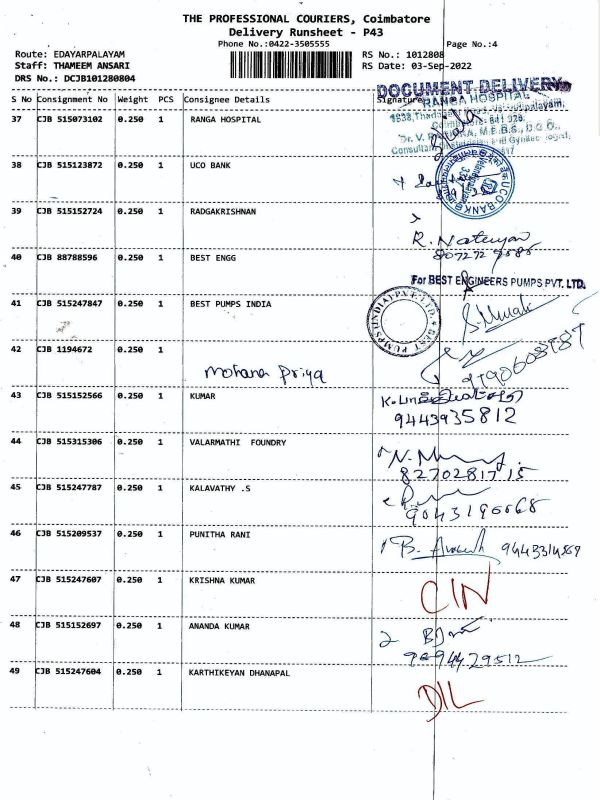 THE PROFESSIONAL COURIERS, Coimbatore
Delivery Runsheet - P43
Phone No.:0422-3505555
Page No.:4
Route: EDAYARPALAYAM
RS No.: 1012808
Staff: THAMEEM ANSARI
RS Date: 03-Sep-2022
DRS No.: DCJB101280804
DOCUMENT DELIVERY
S No Consignment No Weight PCS Consignee Details Signature
RANGA HOSPITAL
37 CJB 515073102 0.250 1 RANGA HOSPITAL
38 CJB 515123872 0.250 1 UCO BANK
UCO BANK
39 CJB 515152724 0.250 1 RADGAKRISHNAN
R. Nateysan
40 CJB 88788596 0.250 1 BEST ENGG
For BEST ENGINEERS PUMPS PVT. LTD.
41 CJB 515247847 0.250 1 BEST PUMPS INDIA
BEST PUMPS (INDIA) PVT. LTD.
42 CJB 1194672 0.250 1
Mohana Priya
43 CJB 515152566 0.250 1 KUMAR
9443935812
44 CJB 515315306 0.250 1 VALARMATHI FOUNDRY
8270281715
45 CJB 515247787 0.250 1 KALAVATHY .S
9043196668
46 CJB 515209537 0.250 1 PUNITHA RANI
47 CJB 515247607 0.250 1 KRISHNA KUMAR
CIN
48 CJB 515152697 0.250 1 ANANDA KUMAR
49 CJB 515247604 0.250 1 KARTHIKEYAN DHANAPAL
D/L